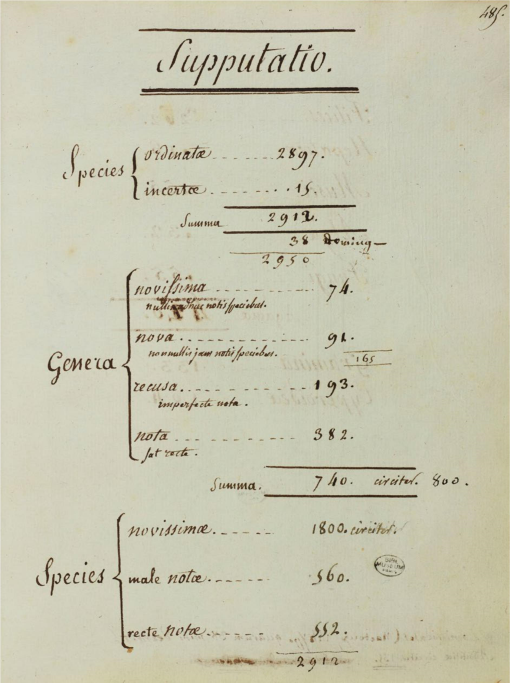 485.
Supputatio.
Species { ordinatæ ....... 2897.
incertæ ....... 15.
Summa 2912.
38
2950
Genera { novissima ....... 74.
nullis adhuc notis speciebus.
nova ....... 91.
nonnullis jam notis speciebus. 165
recusa ....... 193.
imperfecte nota.
nota ....... 382.
sat recte.
Summa. 740. circiter. 800.
Species { novissimæ ....... 1800. circiter.
male notæ ....... 560.
recte notæ ....... 552.
2912